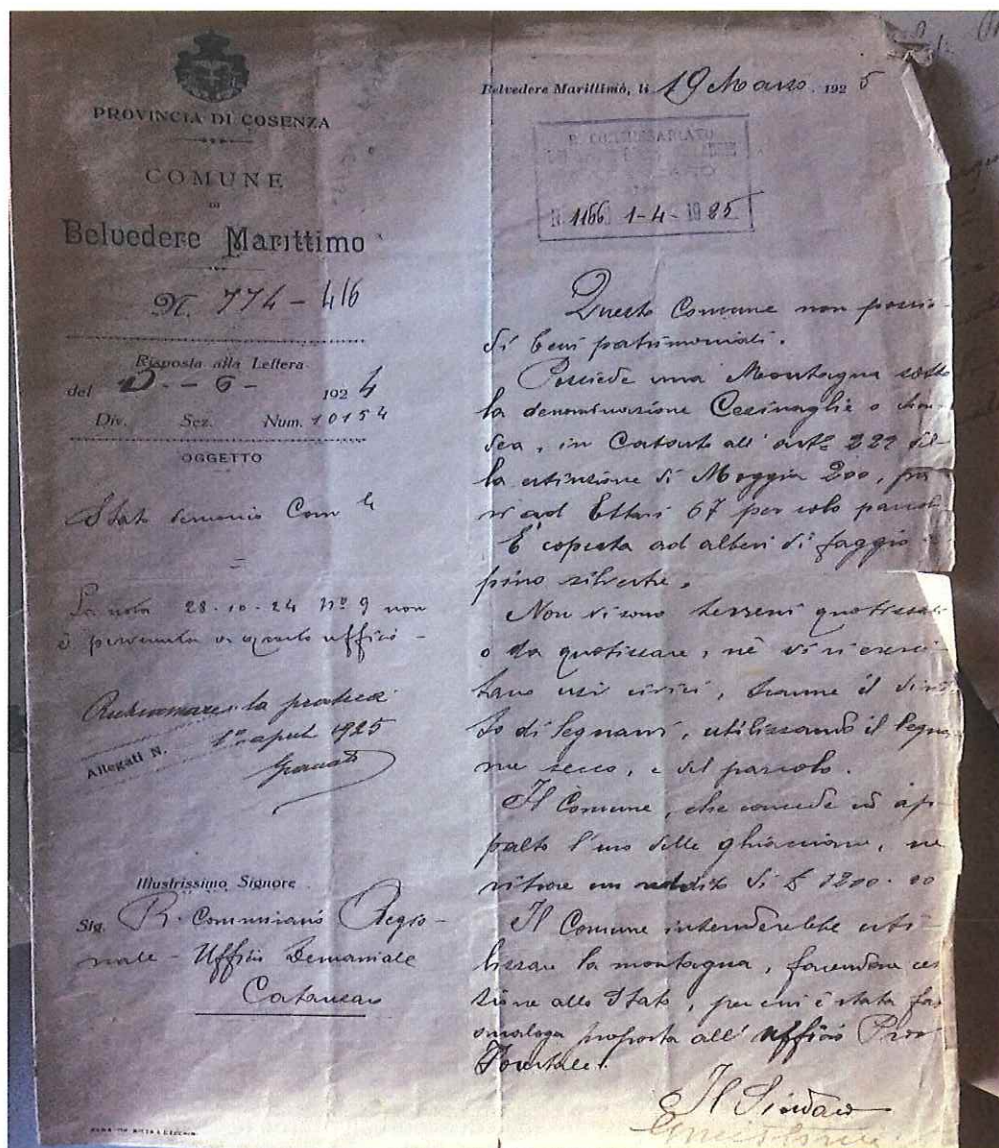 PROVINCIA DI COSENZA
COMUNE
DI
Belvedere Marittimo
N. 774-416
Risposta alla Lettera
del 6 - 1924
Div. Sez. Num. 10154
OGGETTO
Stato demanio Com le
=
La nota 28-10-24 N° 9 non
è pervenuta a questo ufficio -
Richiamare la pratica
1° april 1925
Allegati N.
Illustrissimo Signore
Sig. R. Commissario Regio-
nale - Ufficio Demaniale
Catanzaro
Belvedere Marittimo, li 19 Marzo 1925
R. COMMISSARIATO
N. 1166 1-4-1925
Questo Comune non possie-
di beni patrimoniali.
Possiede una Montagna sotto
la denominazione Cesinaglie o
in Catasto all' art. 222 del-
la estinzione di Moggia 200, pa-
ri ad Ettari 67 per solo pascol
E' coperta ad alberi di faggio
pino silvestre.
Non vi sono terreni quotizzati
o da quotizzare, nè vi si eserci-
tano usi civici, tranne il dirit-
to di legnare, utilizzando il legna-
me secco, e del pascolo.
Il Comune, che concede in ap-
palto l'uso delle ghiacciaie, ne
ritrae un reddito di £ 1200.00
Il Comune intenderebbe uti-
lizzare la montagna, facendone ces-
sione allo Stato, per cui è stata fat
analoga proposta all' Ufficio Prov
Forestale.
Il Sindaco